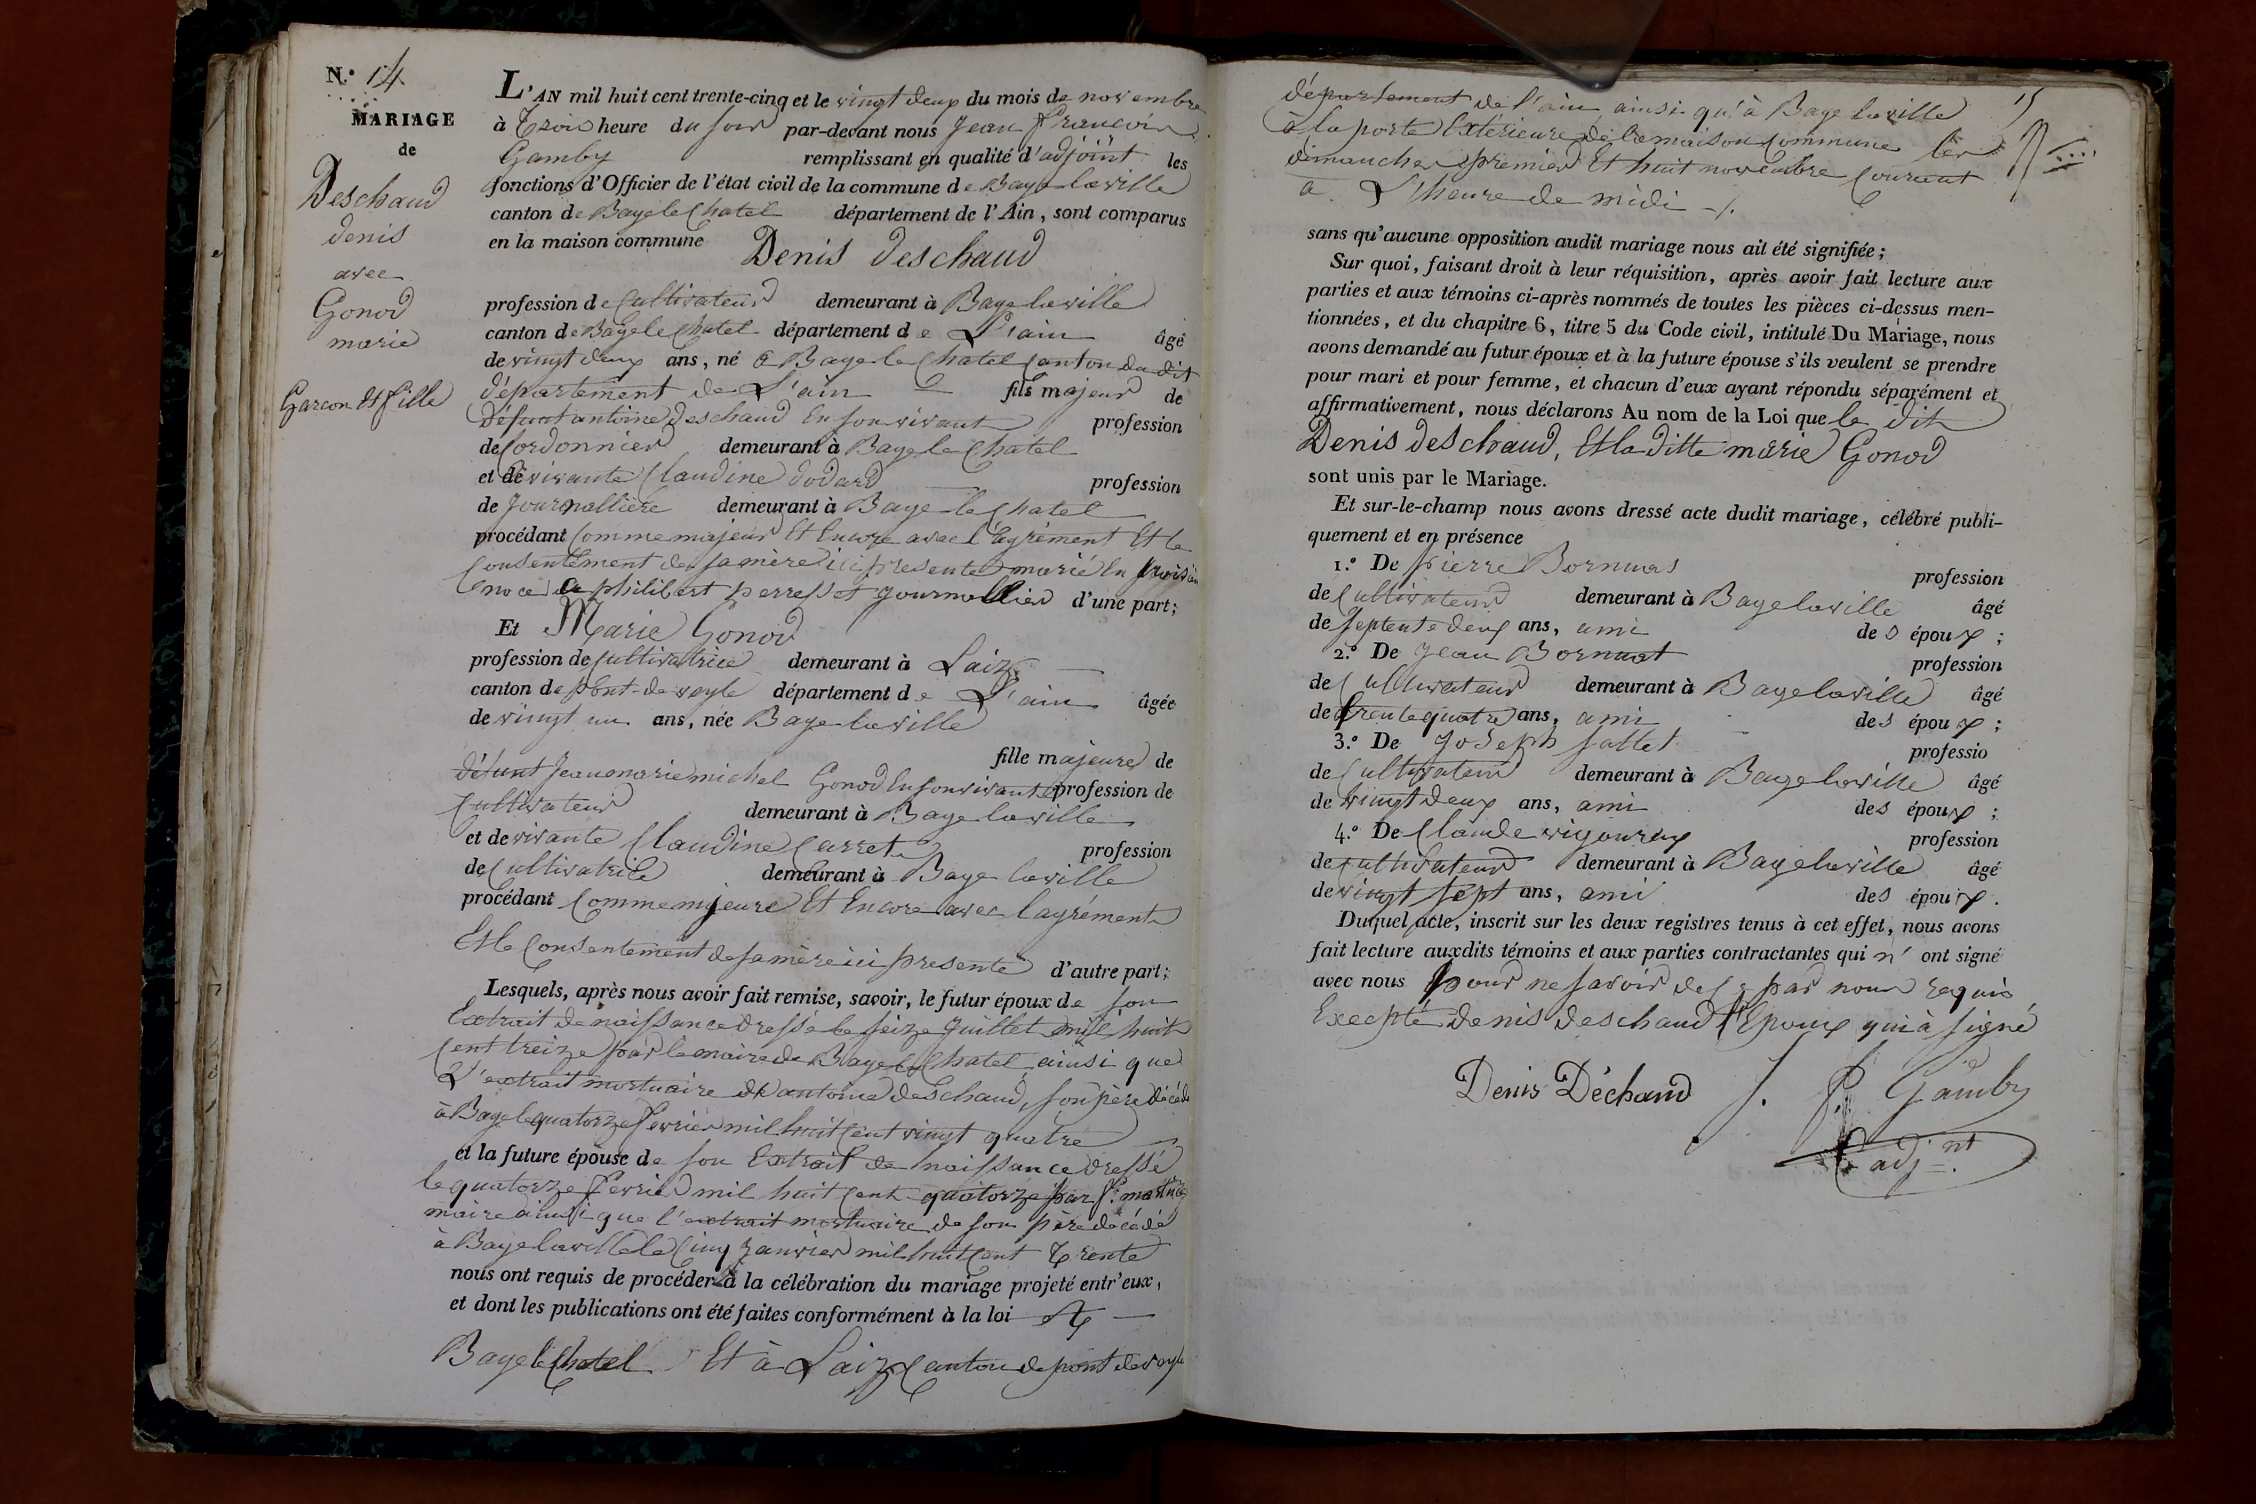 N.º 14
MARIAGE
de
Deschaud
denis
avec
Gonod
marie
Garcon et fille
L'AN mil huit cent trente-cinq et le vingt deux du mois de novembre
à Trois heure du soir par-devant nous Jean françois
Gamby remplissant en qualité d'adjoint les
fonctions d'Officier de l'état civil de la commune de Bage laville
canton de Bage le Chatel département de l'Ain, sont comparus
en la maison commune Denis Deschaud
profession de Cultivateur demeurant à Bage laville
canton de Bage le Chatel département de L'ain âgé
de vingt deux ans, né à Bage le Chatel Canton du dit
département de L'ain fils majeur de
défunt antoine Deschaud En son vivant profession
de Cordonnier demeurant à Bage le Chatel
et de vivante Claudine dodard profession
de Journalliere demeurant à Bage le Chatel
procédant Comme majeur Et Encore avec l'agrément Et le
Consentement de sa mère ici presente marié En
noce a philibert perresset journallier d'une part;
Et Marie Gonod
profession de Cultivatrice demeurant à Laiz
canton de pont-de-veyle département de L'ain âgée
de vingt un ans, née Bage laville
fille majeure de
défunt Jean marie michel Gonod En son vivant profession de
Cultivateur demeurant à Bage laville
et de vivante Claudine Carret profession
de Cultivatrice demeurant à Bage laville
procédant Comme mijeure Et Encore avec lagrément
Et le Consentement de sa mère ici presente d'autre part;
Lesquels, après nous avoir fait remise, savoir, le futur époux de son
Extrait de naissance dressé le seize Juillet mil huit
Cent treize par le maire de Bage le Chatel ainsi que
L'extrait mortuaire de antoine deschaud, son père décédé
à Bage le quatorze fevrier mil huit Cent vingt quatre
et la future épouse de son Extrait de naissance dressé
le quatorze fevrier mil huit Cent quatorze par
maire ainsi que l'extrait mortuaire de son père décédé
à Bage laville le Cinq Janvier mil huit Cent Trente
nous ont requis de procéder à la célébration du mariage projeté entr'eux,
et dont les publications ont été faites conformément à la loi
Bage le Chatel Et à Laiz Canton de pont de veyle
15
département de l'ain ainsi qu'à Bage laville
à la porte Extérieure de la maison Commune les
dimanches premier Et huit novembre Courant
a L'heure de midi
sans qu'aucune opposition audit mariage nous ait été signifiée;
Sur quoi, faisant droit à leur réquisition, après avoir fait lecture aux
parties et aux témoins ci-après nommés de toutes les pièces ci-dessus men-
tionnées, et du chapitre 6, titre 5 du Code civil, intitulé Du Mariage, nous
avons demandé au futur époux et à la future épouse s'ils veulent se prendre
pour mari et pour femme, et chacun d'eux ayant répondu séparément et
affirmativement, nous déclarons Au nom de la Loi que le dit
Denis deschaud, Et la ditte marie Gonod
sont unis par le Mariage.
Et sur-le-champ nous avons dressé acte dudit mariage, célébré publi-
quement et en présence
1.º De pierre Bornuas profession
de Cultivateur demeurant à Bage laville âgé
de septente deux ans, ami des époux;
2.º De Jean Bornuat profession
de Cultivateur demeurant à Bage laville âgé
de trente quatre ans, ami des époux;
3.º De Joseph fattet professio
de Cultivateur demeurant à Bage laville âgé
de vingt deux ans, ami des époux;
4.º De Claude vigoureux profession
de Cultivateur demeurant à Bage laville âgé
de vingt sept ans, ami des époux.
Duquel acte, inscrit sur les deux registres tenus à cet effet, nous avons
fait lecture auxdits témoins et aux parties contractantes qui n' ont signé
avec nous pour ne savoir de ce par nous requis
Excepté denis deschaud l'Epoux qui à signé
Denis Déchaud J. f. Gamby
adj.nt